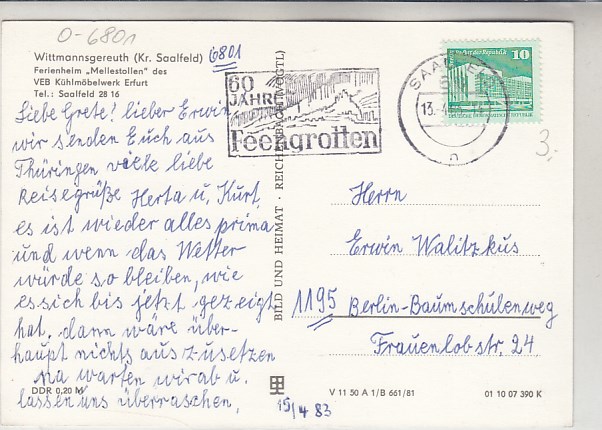 O-6801
Wittmannsgereuth (Kr. Saalfeld) 6801
Ferienheim „Mellestollen" des
VEB Kühlmöbelwerk Erfurt
Tel.: Saalfeld 28 16
Liebe Grete! lieber Erwin
wir senden Euch aus
Thüringen viele liebe
Reisegrüße Herta u. Kurt,
es ist wieder alles prima
und wenn das Wetter
würde so bleiben, wie
es sich bis jetzt gezeigt
hat, dann wäre über-
haupt nichts auszusetzen
Na warten wir ab u.
lassen uns überraschen.
DDR 0,20 M
15/4 83
BILD UND HEIMAT · REICHENBACH (VOGTL)
60
JAHRE
Feengrotten
SAALFELD
13.
n
Palast der Republik 10
DEUTSCHE DEMOKRATISCHE REPUBLIK
3,-
Herrn
Erwin Walitzkus
1195 Berlin-Baumschulenweg
Frauenlobstr. 24
V 11 50 A 1/B 661/81
01 10 07 390 K